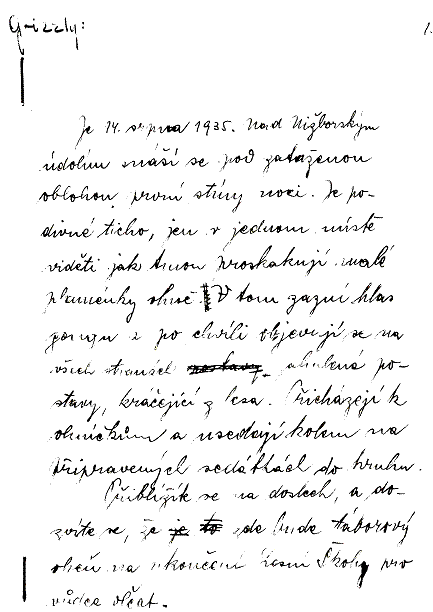 Grizzly:
1.
Je 14. srpna 1935. Nad Nižborským
údolím snáší se pod zataženou
oblohou první stíny noci. Je po-
divné ticho, jen v jednom místě
viděti jak tmou proskakují malé
plaménky ohně. V tom zazní hlas
gongu a po chvíli objevují se na
všech stranách postavy, zahalené po-
stavy, kráčející z lesa. Přicházejí k
ohníčkům a usedají kolem na
připravených sedátkách do kruhu.
Přiblížík se na doslech, a do-
zvíte se, že je to zde bude táborový
oheň na ukončení Lesní Školy pro
vůdce vlčat.